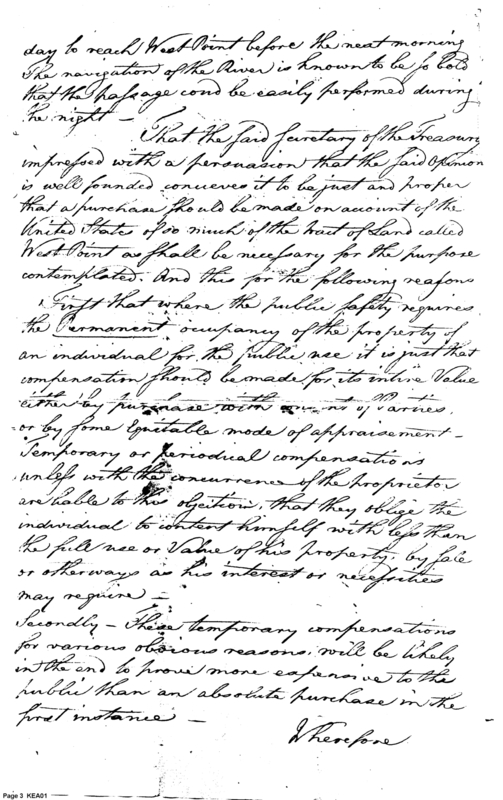 day to reach West Point before the next morning
The navigation of the River is known to be so bold
that the passage coud be easily performed during
the night —
That the said Secretary of the Treasury
impressed with a persuasion that the said Opinion
is well founded concieves it to be just and proper
that a purchase should be made on account of the
United States of so much of the tract of Land called
West Point as shall be necessary for the purpose
contemplated. And this for the following reasons
First that where the public safety requires
the Permanent occupancy of the property of
an individual for the public use it is just that
compensation should be made for its intire Value
either by purchase with consent of Parties,
or by some Equitable mode of appraisement —
Temporary or periodical compensations
unless with the concurrence of the proprietor
are liable to this objection, that they oblige the
individual to content himself with less than
the full use or Value of his property, by sale
or otherways as his interest or necessities
may require —
Secondly — These temporary compensations
for various obvious reasons will be likely
in the end to prove more expensive to the
public than an absolute purchase in the
first instance —
Wherefore
Page 3 KEA01